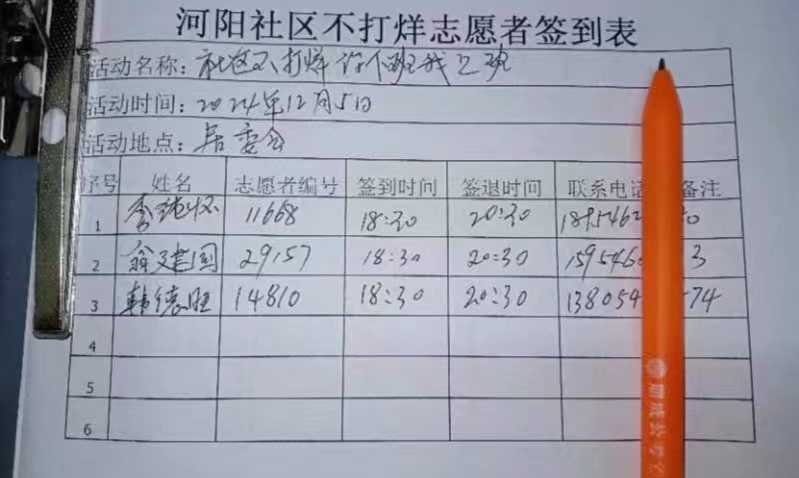 河阳社区不打烊志愿者签到表
活动名称：社区不打烊 你下班我上班
活动时间：2024年12月5日
活动地点：居委会
序号 姓名 志愿者编号 签到时间 签退时间 联系电话 备注
1 李 11668 18:30 20:30 1895462 0
2 翁建国 29157 18:30 20:30 1595460 3
3 韩德旺 14810 18:30 20:30 138054 74
4
5
6